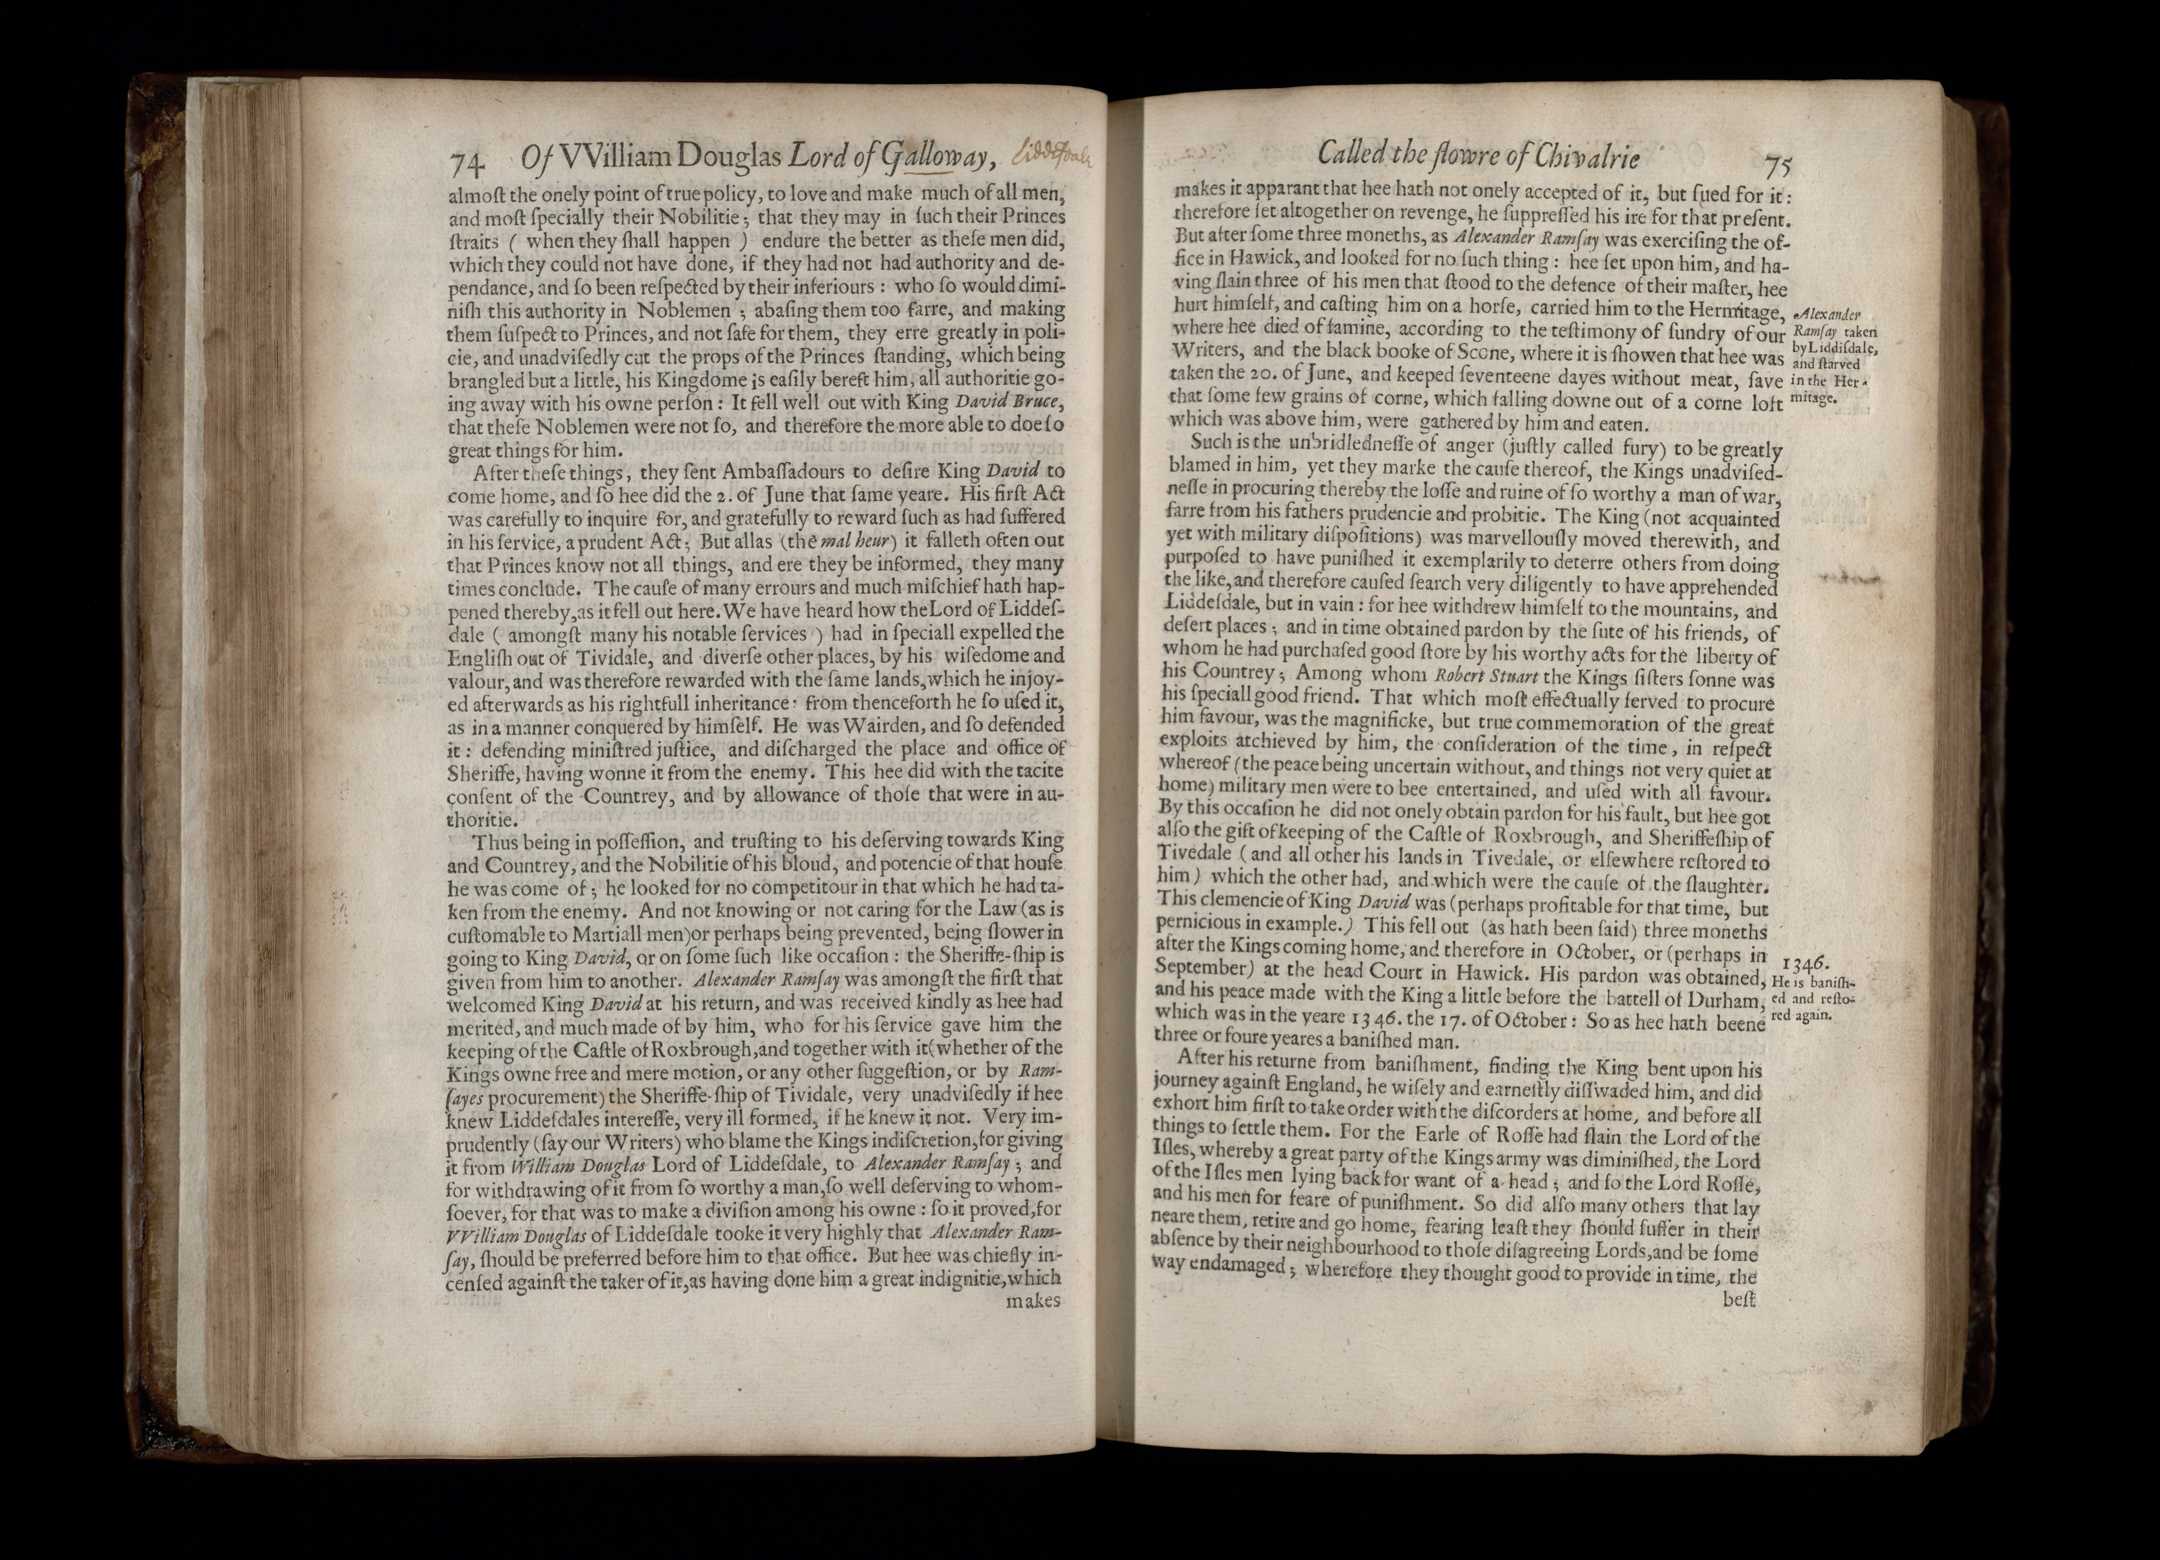 74 Of VVilliam Douglas Lord of Galloway, Liddesdale
almoſt the onely point of true policy, to love and make much of all men,
and moſt ſpecially their Nobilitie; that they may in ſuch their Princes
ſtraits ( when they ſhall happen ) endure the better as theſe men did,
which they could not have done, if they had not had authority and de-
pendance, and ſo been reſpected by their inferiours : who ſo would dimi-
niſh this authority in Noblemen ; abaſing them too farre, and making
them ſuſpect to Princes, and not ſafe for them, they erre greatly in poli-
cie, and unadviſedly cut the props of the Princes ſtanding, which being
brangled but a little, his Kingdome is eaſily bereft him, all authoritie go-
ing away with his owne perſon : It fell well out with King David Bruce,
that theſe Noblemen were not ſo, and therefore the more able to doe ſo
great things for him.
After theſe things, they ſent Ambaſſadours to deſire King David to
come home, and ſo hee did the 2. of June that ſame yeare. His firſt Act
was carefully to inquire for, and gratefully to reward ſuch as had ſuffered
in his ſervice, a prudent Act; But allas (the mal heur) it falleth often out
that Princes know not all things, and ere they be informed, they many
times conclude. The cauſe of many errours and much miſchief hath hap-
pened thereby,as it fell out here. We have heard how the Lord of Liddeſ-
dale ( amongſt many his notable ſervices ) had in ſpeciall expelled the
Engliſh out of Tividale, and diverſe other places, by his wiſedome and
valour, and was therefore rewarded with the ſame lands, which he injoy-
ed afterwards as his rightfull inheritance: from thenceforth he ſo uſed it,
as in a manner conquered by himſelf. He was Wairden, and ſo defended
it : defending miniſtred juſtice, and diſcharged the place and office of
Sheriffe, having wonne it from the enemy. This hee did with the tacite
conſent of the Countrey, and by allowance of thoſe that were in au-
thoritie.
Thus being in poſſeſſion, and truſting to his deſerving towards King
and Countrey, and the Nobilitie of his bloud, and potencie of that houſe
he was come of ; he looked for no competitour in that which he had ta-
ken from the enemy. And not knowing or not caring for the Law (as is
cuſtomable to Martiall men)or perhaps being prevented, being ſlower in
going to King David, or on ſome ſuch like occaſion : the Sheriffe-ſhip is
given from him to another. Alexander Ramſay was amongſt the firſt that
welcomed King David at his return, and was received kindly as hee had
merited, and much made of by him, who for his ſervice gave him the
keeping of the Caſtle of Roxbrough,and together with it(whether of the
Kings owne free and mere motion, or any other ſuggeſtion, or by Ram-
ſayes procurement) the Sheriffe-ſhip of Tividale, very unadviſedly if hee
knew Liddeſdales intereſſe, very ill formed, if he knew it not. Very im-
prudently (ſay our Writers) who blame the Kings indiſcretion,for giving
it from William Douglas Lord of Liddeſdale, to Alexander Ramſay ; and
for withdrawing of it from ſo worthy a man,ſo well deſerving to whom-
ſoever, for that was to make a diviſion among his owne : ſo it proved,for
VVilliam Douglas of Liddeſdale tooke it very highly that Alexander Ram-
ſay, ſhould be preferred before him to that office. But hee was chiefly in-
cenſed againſt the taker of it,as having done him a great indignitie,which
makes
Called the flowre of Chivalrie 75
makes it apparant that hee hath not onely accepted of it, but ſued for it :
therefore ſet altogether on revenge, he ſuppreſſed his ire for that preſent.
But after ſome three moneths, as Alexander Ramſay was exerciſing the of-
fice in Hawick, and looked for no ſuch thing : hee ſet upon him, and ha-
ving ſlain three of his men that ſtood to the defence of their maſter, hee
hurt himſelf, and caſting him on a horſe, carried him to the Hermitage,
where hee died of famine, according to the teſtimony of ſundry of our
Writers, and the black booke of Scone, where it is ſhowen that hee was
taken the 20. of June, and keeped ſeventeene dayes without meat, ſave
that ſome few grains of corne, which falling downe out of a corne loft
which was above him, were gathered by him and eaten.
Alexander
Ramſay taken
by Liddiſdale,
and ſtarved
in the Her-
mitage.
Such is the unbridledneſſe of anger (juſtly called fury) to be greatly
blamed in him, yet they marke the cauſe thereof, the Kings unadviſed-
neſſe in procuring thereby the loſſe and ruine of ſo worthy a man of war,
farre from his fathers prudencie and probitie. The King (not acquainted
yet with military diſpoſitions) was marvellouſly moved therewith, and
purpoſed to have puniſhed it exemplarily to deterre others from doing
the like, and therefore cauſed ſearch very diligently to have apprehended
Liddeſdale, but in vain : for hee withdrew himſelf to the mountains, and
deſert places ; and in time obtained pardon by the ſute of his friends, of
whom he had purchaſed good ſtore by his worthy acts for the liberty of
his Countrey ; Among whom Robert Stuart the Kings ſiſters ſonne was
his ſpeciall good friend. That which moſt effectually ſerved to procure
him favour, was the magnificke, but true commemoration of the great
exploits atchieved by him, the conſideration of the time, in reſpect
whereof (the peace being uncertain without, and things not very quiet at
home) military men were to bee entertained, and uſed with all favour.
By this occaſion he did not onely obtain pardon for his fault, but hee got
alſo the gift of keeping of the Caſtle of Roxbrough, and Sheriffeſhip of
Tivedale ( and all other his lands in Tivedale, or elſewhere reſtored to
him ) which the other had, and which were the cauſe of the ſlaughter.
This clemencie of King David was (perhaps profitable for that time, but
pernicious in example.) This fell out (as hath been ſaid) three moneths
after the Kings coming home, and therefore in October, or (perhaps in
September) at the head Court in Hawick. His pardon was obtained,
and his peace made with the King a little before the battell of Durham,
which was in the yeare 1346. the 17. of October : So as hee hath beene
three or foure yeares a baniſhed man.
1346.
He is baniſh-
ed and reſto-
red again.
After his returne from baniſhment, finding the King bent upon his
journey againſt England, he wiſely and earneſtly diſſwaded him, and did
exhort him firſt to take order with the diſcorders at home, and before all
things to ſettle them. For the Earle of Roſſe had ſlain the Lord of the
Iſles, whereby a great party of the Kings army was diminiſhed, the Lord
of the Iſles men lying back for want of a head ; and ſo the Lord Roſſe,
and his men for feare of puniſhment. So did alſo many others that lay
neare them, retire and go home, fearing leaſt they ſhould ſuffer in their
abſence by their neighbourhood to thoſe diſagreeing Lords,and be ſome
way endamaged ; wherefore they thought good to provide in time, the
beſt